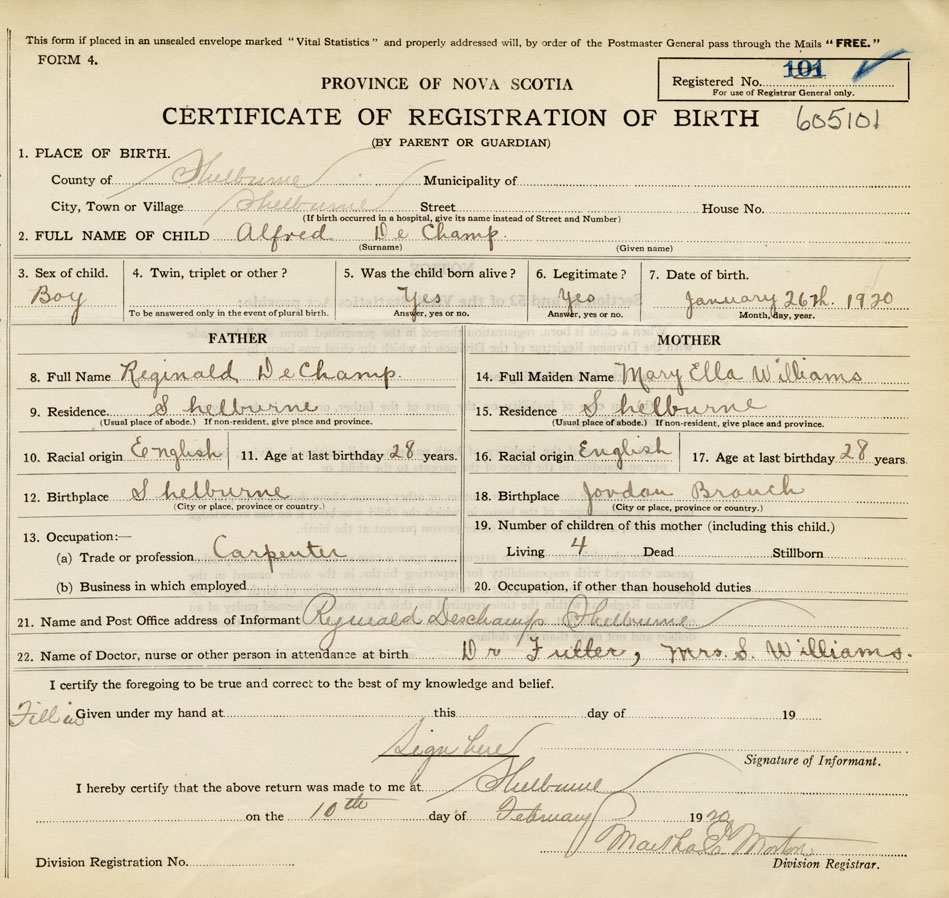 This form if placed in an unsealed envelope marked "Vital Statistics" and properly addressed will, by order of the Postmaster General pass through the Mails "FREE."
FORM 4.
Registered No. 101
For use of Registrar General only.
PROVINCE OF NOVA SCOTIA
CERTIFICATE OF REGISTRATION OF BIRTH 605101
(BY PARENT OR GUARDIAN)
1. PLACE OF BIRTH.
County of Shelburne Municipality of
City, Town or Village Shelburne Street House No.
(If birth occurred in a hospital, give its name instead of Street and Number)
2. FULL NAME OF CHILD Alfred De Champ.
(Surname) (Given name)
3. Sex of child. 4. Twin, triplet or other? 5. Was the child born alive? 6. Legitimate? 7. Date of birth.
Boy Yes Yes January 26th. 1920
To be answered only in the event of plural birth. Answer, yes or no. Answer, yes or no. Month, day, year.
FATHER MOTHER
8. Full Name Reginald DeChamp. 14. Full Maiden Name Mary Ella Williams
9. Residence. Shelburne 15. Residence Shelburne
(Usual place of abode.) If non-resident, give place and province. (Usual place of abode.) If non-resident, give place and province.
10. Racial origin English 11. Age at last birthday 28 years. 16. Racial origin English 17. Age at last birthday 28 years.
12. Birthplace Shelburne 18. Birthplace Jordan Branch
(City or place, province or country.) (City or place, province or country.)
13. Occupation:— 19. Number of children of this mother (including this child.)
(a) Trade or profession Carpenter Living 4 Dead Stillborn
(b) Business in which employed 20. Occupation, if other than household duties
21. Name and Post Office address of Informant Reginald Deschamp Shelburne
22. Name of Doctor, nurse or other person in attendance at birth Dr Fuller, Mrs. S. Williams.
I certify the foregoing to be true and correct to the best of my knowledge and belief.
Fill in Given under my hand at this day of 19
Sign here
Signature of Informant.
I hereby certify that the above return was made to me at Shelburne
on the 10th day of February 1920
Martha E. Morton
Division Registration No. Division Registrar.